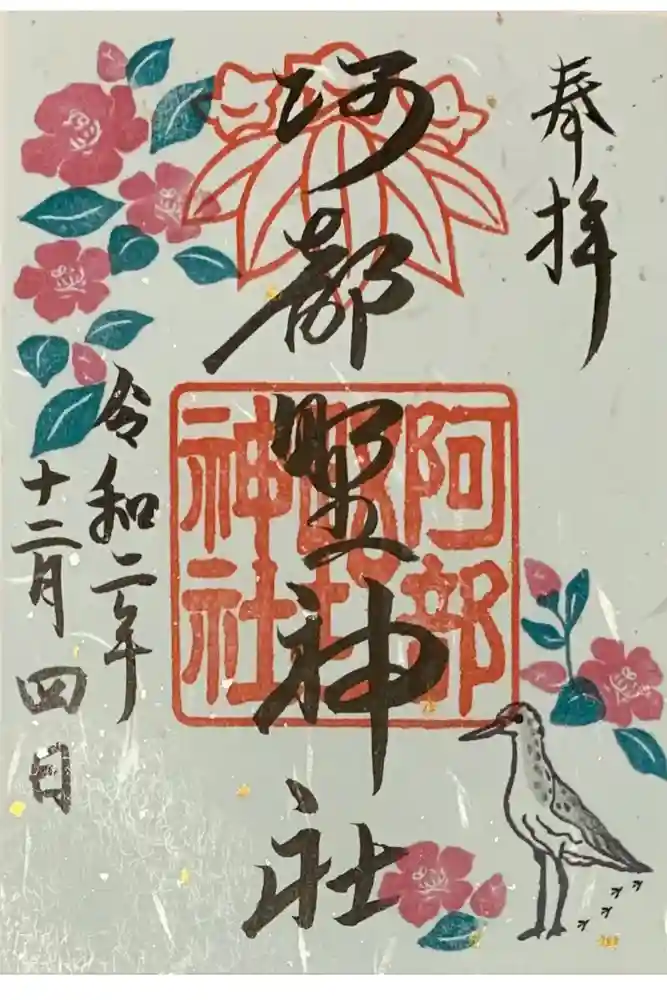 奉拝
阿部野神社
阿部
野
神社
令和二年
十二月四日